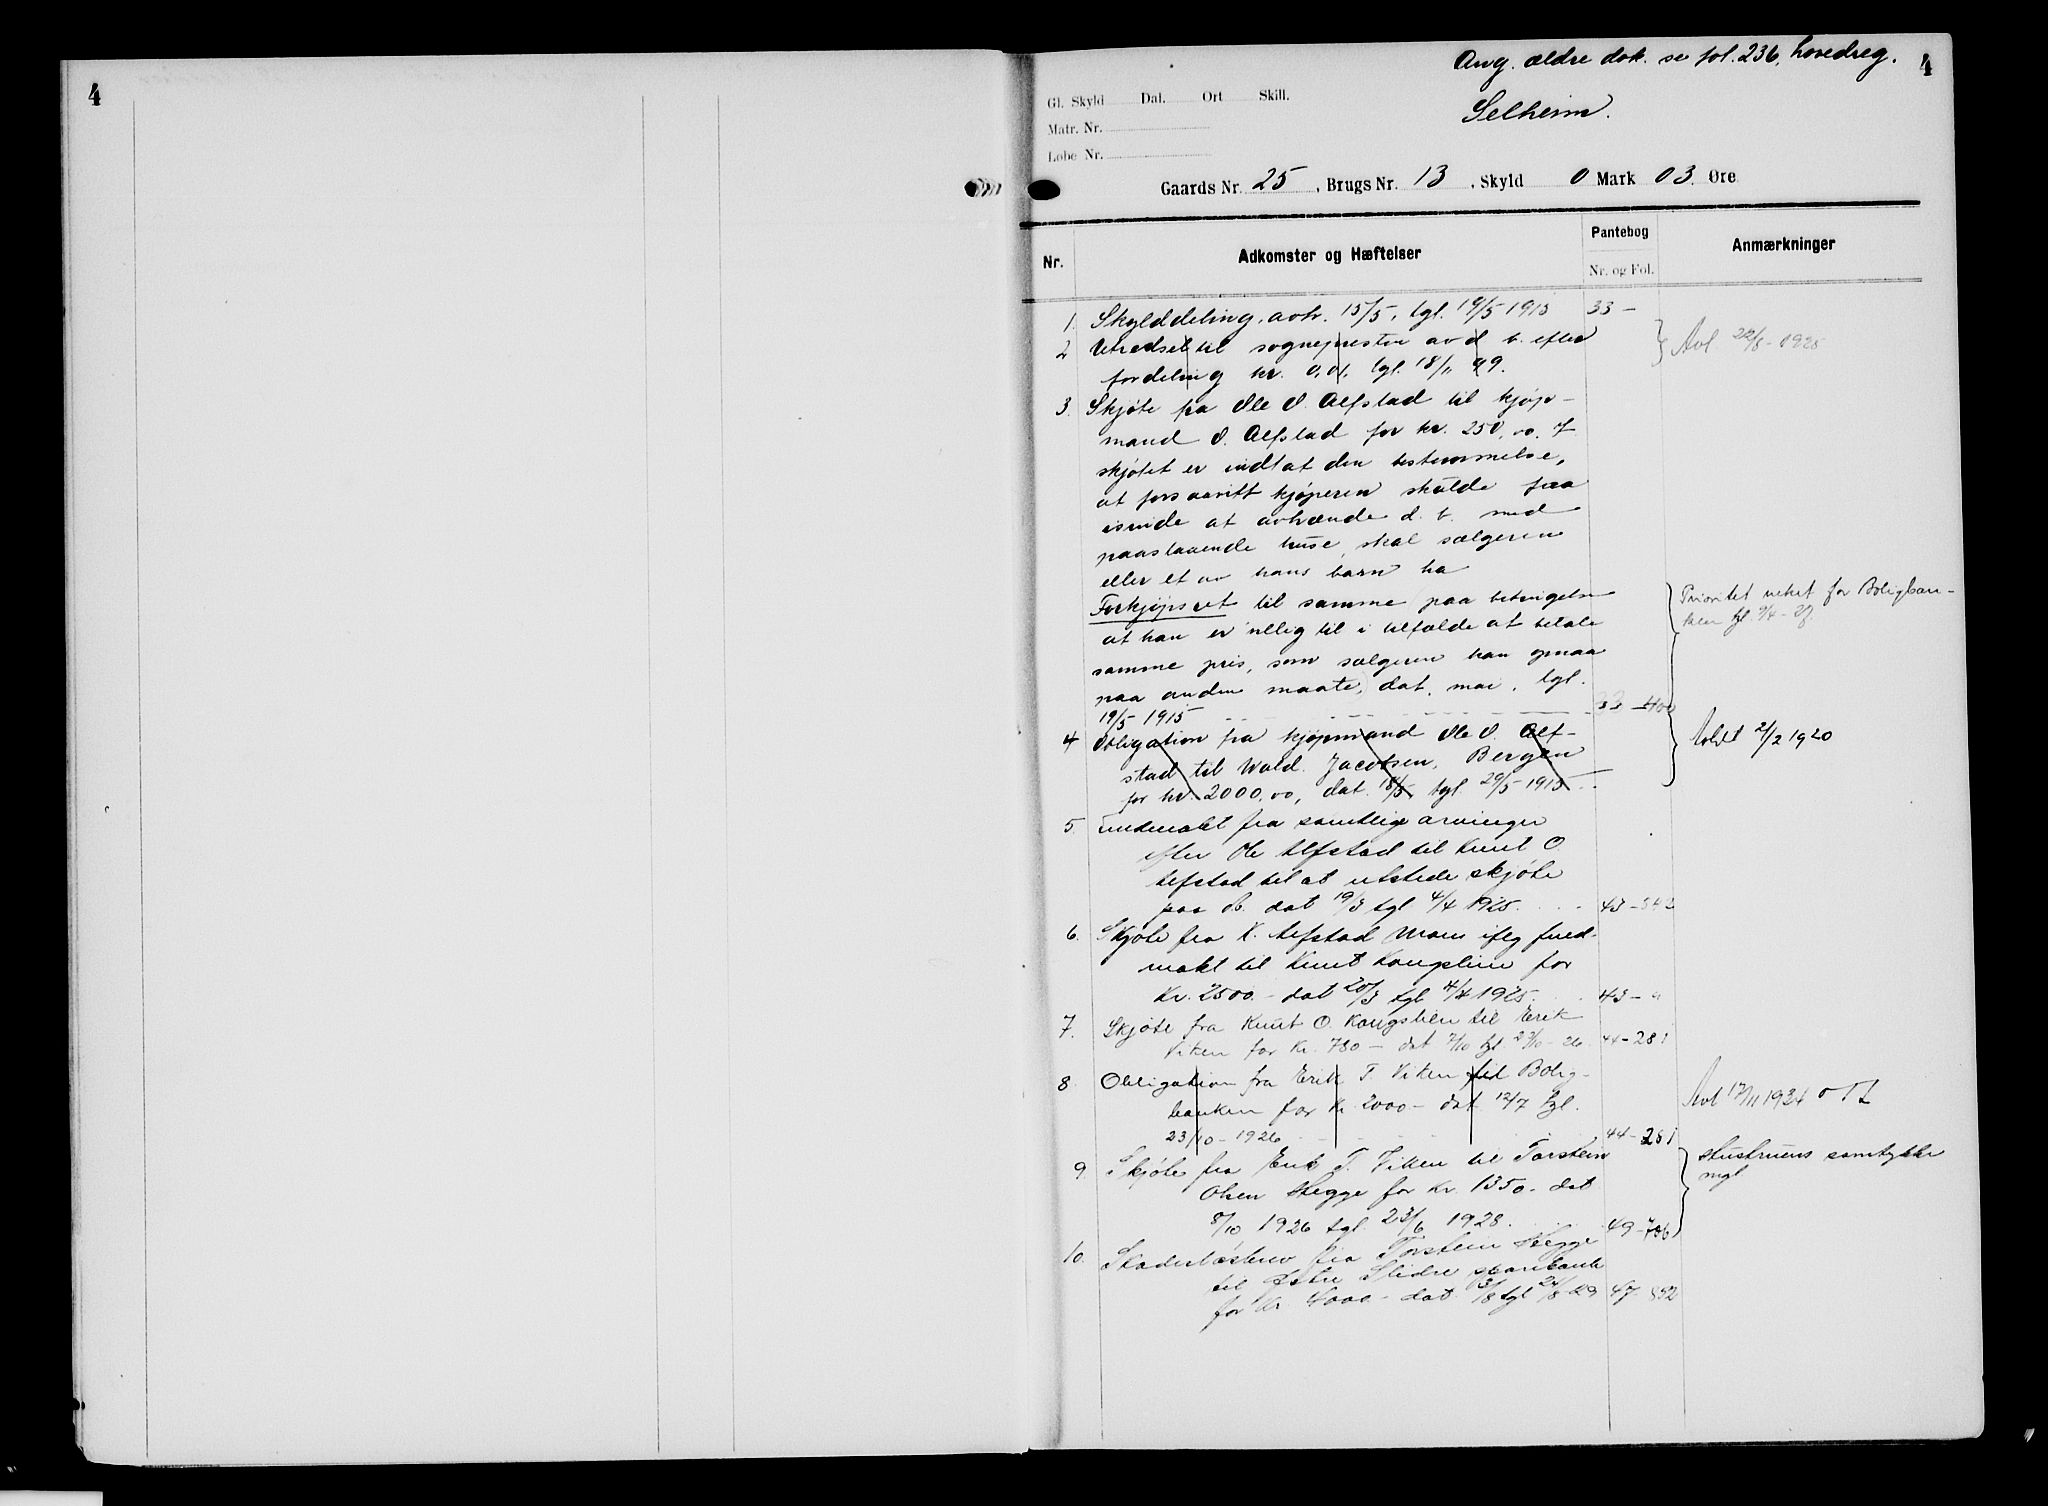 4
4
Ang. ældre dok. se fol. 236, hovedreg.
Selheim.
Gl. Skyld Dal. Ort Skill.
Matr. Nr.
Løbe Nr.
Gaards Nr. 25, Brugs Nr. 13, Skyld 0 Mark 03 Øre
Nr. Adkomster og Hæftelser Pantebog Anmærkninger
Nr. og Fol.
1. Skylddeling, avh. 15/5, tgl. 19/5 1915 33 -
2 til sognepresten av d. b. efter
fordeling kr. 0,01, tgl. 18/11 99.
Avl 1925
3. Skjøte fra Ole O. Alfstad til kjøp-
mand O. Alfstad for kr. 250,00. I
skjøtet er indtat den bestemmelse,
at forsaavitt kjøperen skulde faa
isinde at avhænde d. b. med
paastaaende huse, skal sælgeren
eller et av hans barn ha
Forkjøpsret til samme paa betingelse
at han er villig til i tilfælde at betale
samme pris, som sælgeren kan opnaa
paa anden maate, dat. mai, tgl.
19/5 1915 33 - 400
Prioritet veket for Boligban-
ken tgl. 9/4 - 27.
4 Obligation fra kjøpmand Ole O. Alf-
stad til Wald. Jacobsen, Bergen
for kr. 2000,00, dat. 18/5, tgl. 29/5 1915
Avlst 2/2 1920
5. Fuldmakt fra samtlige arvinger
efter Ole Alfstad til Knut O.
Alfstad til at utstede skjøte
paa db. dat 19/3 tgl 4/4 1925. 43 - 542
6. Skjøte fra K. Alfstad iflg fuld-
makt til Knut Kongslien for
Kr. 2500.- dat 20/3 tgl 4/4 1925. 43 - "
7. Skjøte fra Knut O. Kongslien til Erik
Viken for Kr. 750 - dat 7/10 tgl. 23/10 - 26. 44 - 281
8. Obligation fra Erik T. Viken til Bolig-
banken for Kr. 2000 - dat 12/7 tgl.
23/10 - 1926 44 - 281
Avl 17/11 1934
9. Skjøte fra Erik T. Viken til Torstein
Olsen Hegge for Kr. 1350.- dat
8/10 1926 tgl. 23/6 1928. 49 - 706
Hustruens samtykke
mgl
10. Skadesløsbrev fra Torstein Hegge
til Østre Slidre sparebank
for Kr. 4000 - dat. 13/8 tgl 24/8 - 29 47 - 892